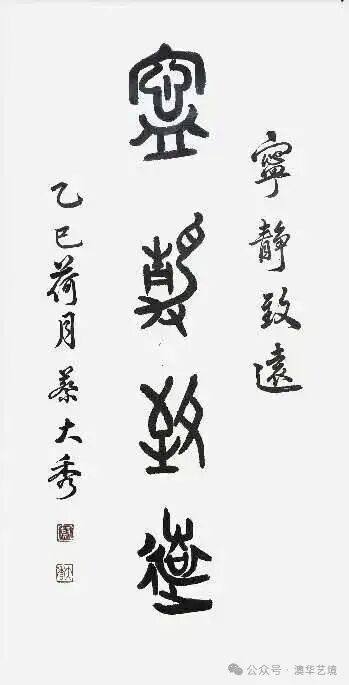 寧靜致遠
寧靜致遠
乙巳荷月蔡大秀
公众号·澳华艺境